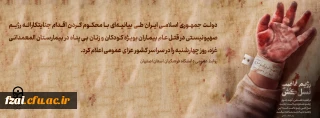 دولت جمهوری اسلامی ایران طی بیانیه‌ای با محکوم کردن اقدام جنایتکارانه رژیم
صهیونیستی در قتل عام بیماران بویژه کودکان و زنان بی پناه در بیمارستان المعمدانی
غزه، روز چهارشنبه را در سراسر کشور عزای عمومی اعلام کرد.
روابط عمومی دانشگاه فرهنگیان استان اصفهان
fzai.cfu.ac.ir